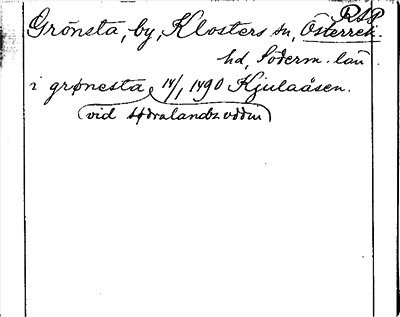 RAP
Grönsta, by, Klosters sn, Österrek.
hd, Söderm. län
i grønesta 14/1 1490 Kjulaåsen.
(vid Hdralandz oddin)